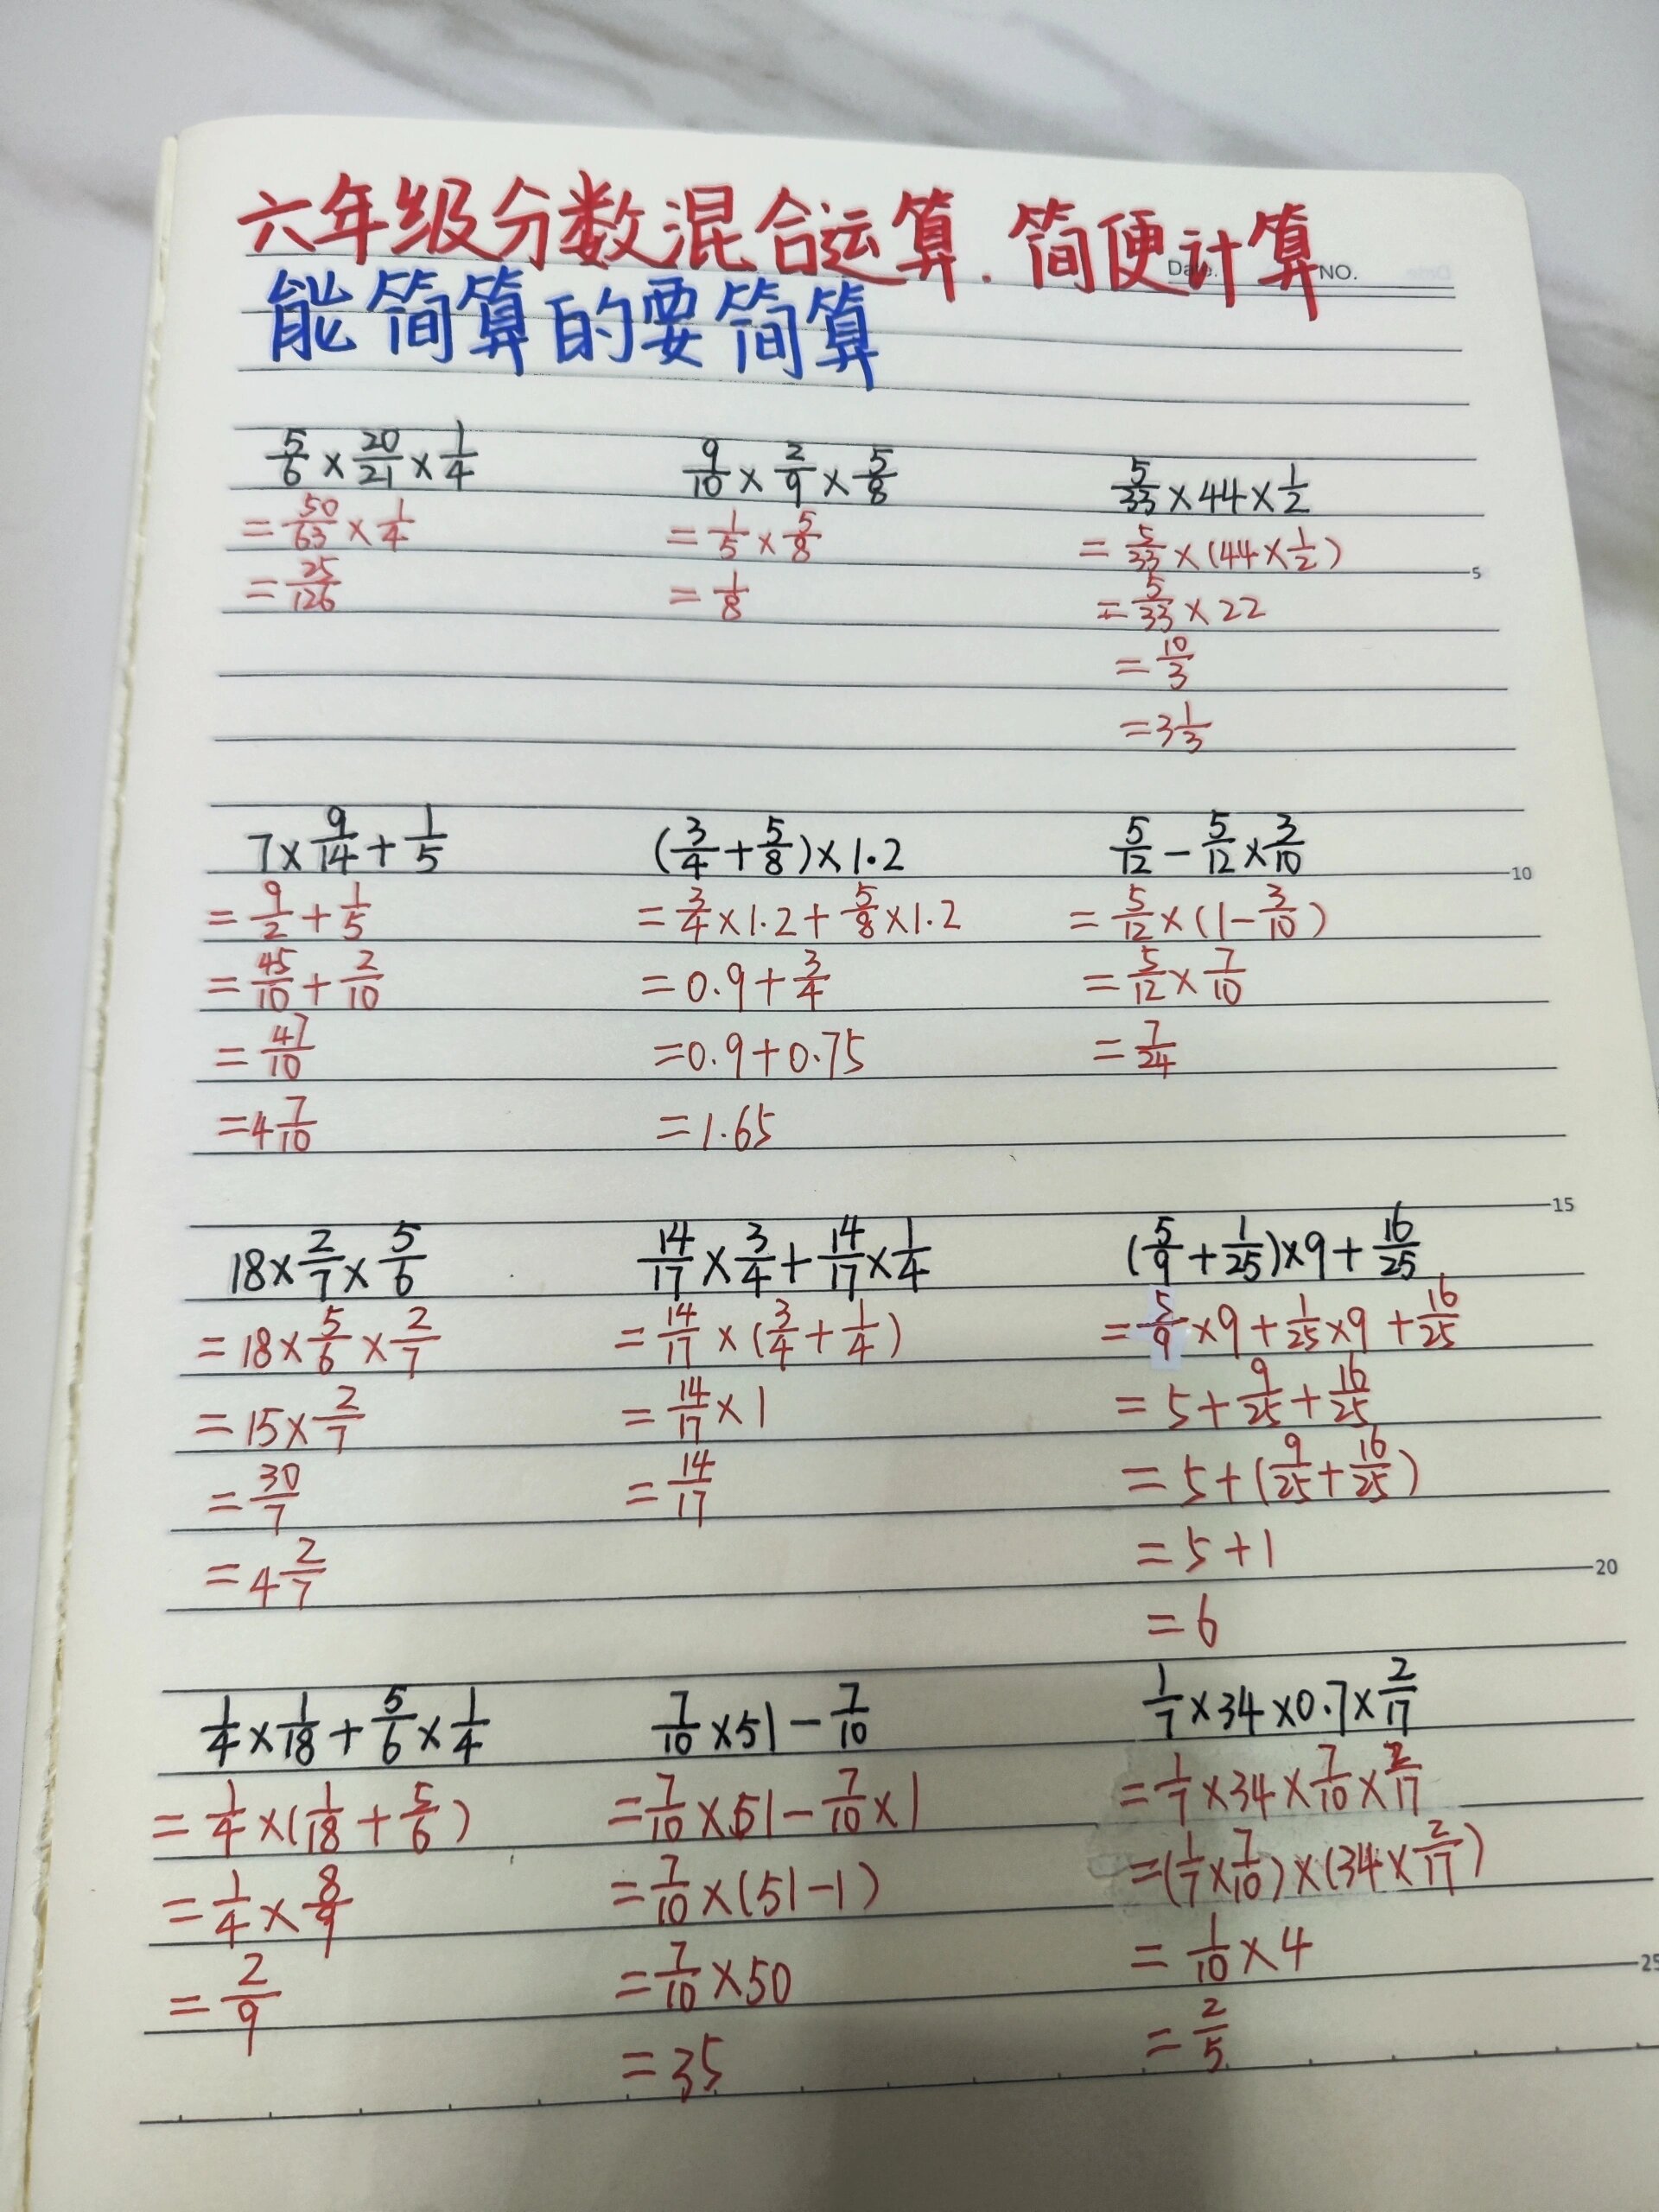 六年级分数混合运算.简便计算
Date. NO.
能简算的要简算
5/6×20/21×1/4
=50/63×1/4
=25/126
9/10×2/9×5/8
=1/5×5/8
=1/8
5/33×44×1/2
=5/33×(44×1/2)
=5/33×22
=10/3
=3 1/3
5
7×9/14+1/5
=9/2+1/5
=45/10+2/10
=47/10
=4 7/10
(3/4+5/8)×1.2
=3/4×1.2+5/8×1.2
=0.9+3/4
=0.9+0.75
=1.65
5/12-5/12×3/10
=5/12×(1-3/10)
=5/12×7/10
=7/24
10
18×2/7×5/6
=18×5/6×2/7
=15×2/7
=30/7
=4 2/7
14/17×3/4+14/17×1/4
=14/17×(3/4+1/4)
=14/17×1
=14/17
15
(5/9+1/25)×9+16/25
=5/9×9+1/25×9+16/25
=5+9/25+16/25
=5+(9/25+16/25)
=5+1
=6
20
1/4×1/18+5/6×1/4
=1/4×(1/18+5/6)
=1/4×8/9
=2/9
7/10×51-7/10
=7/10×51-7/10×1
=7/10×(51-1)
=7/10×50
=35
1/7×34×0.7×2/17
=1/7×34×7/10×2/17
=(1/7×7/10)×(34×2/17)
=1/10×4
=2/5
25